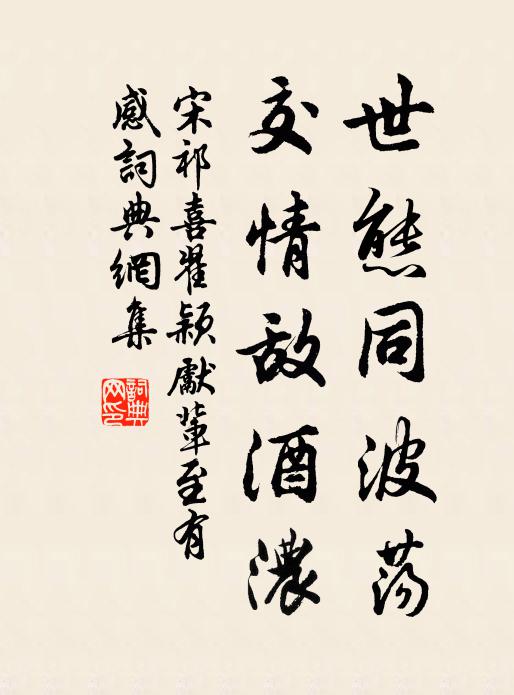 世態同波蕩
交情敌酒濃
宋祁喜翟颍獻輩至有
感詞典網集
詞典网印